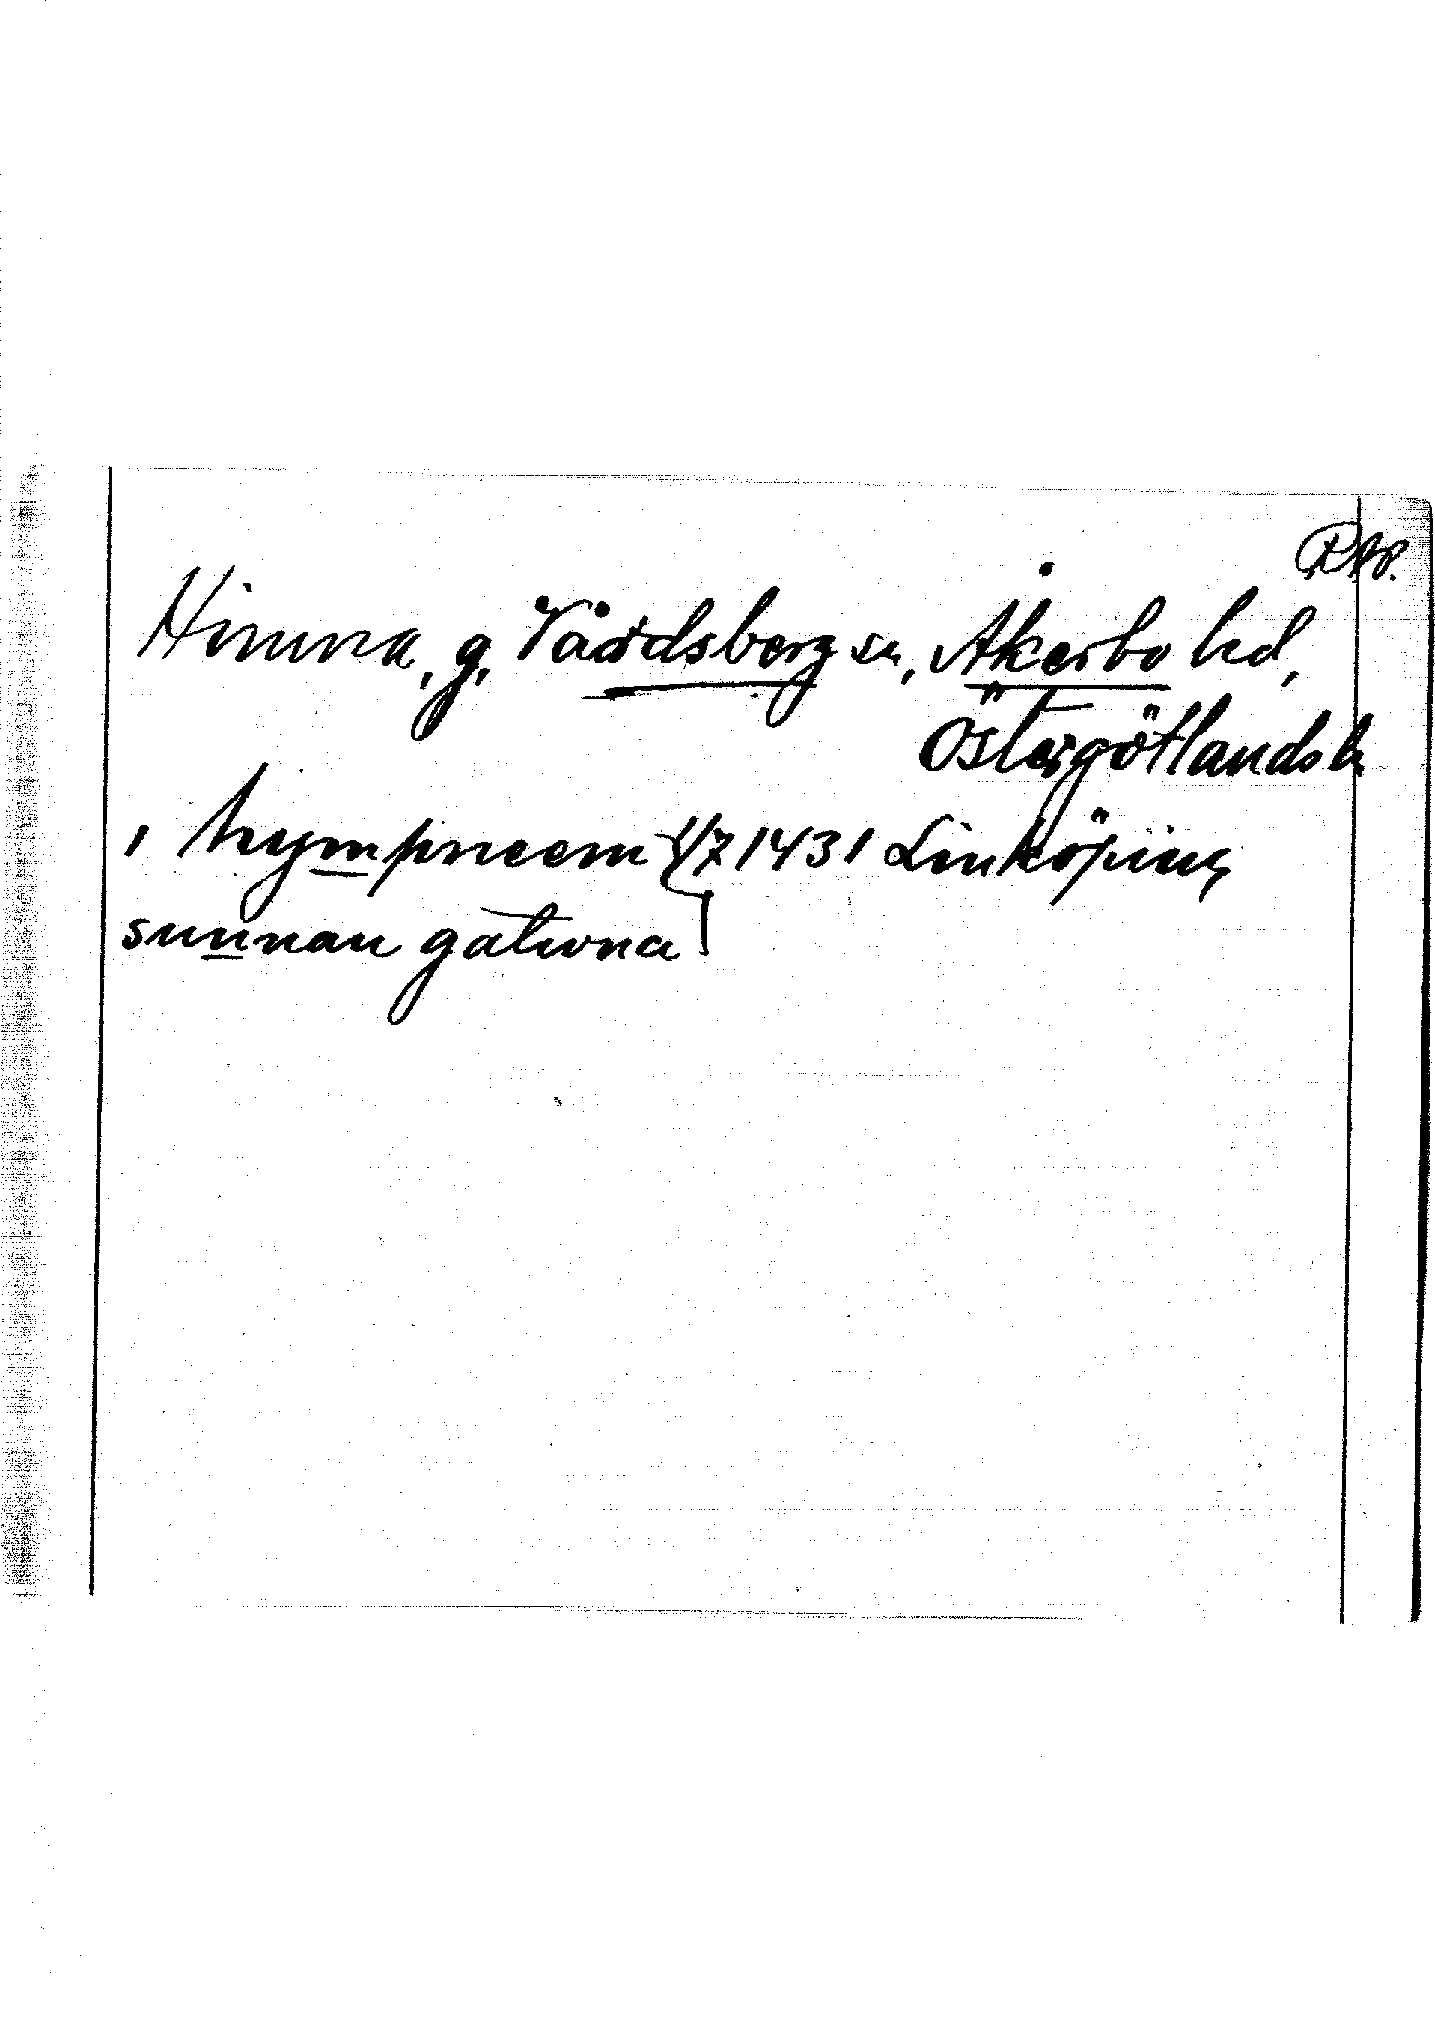 RAp.
Himna, g, Vårdsberg sn, Åkerbo hd,
Östergötlands l.
, hympneem 4/7 1431 Linköping
sunnan gatwna